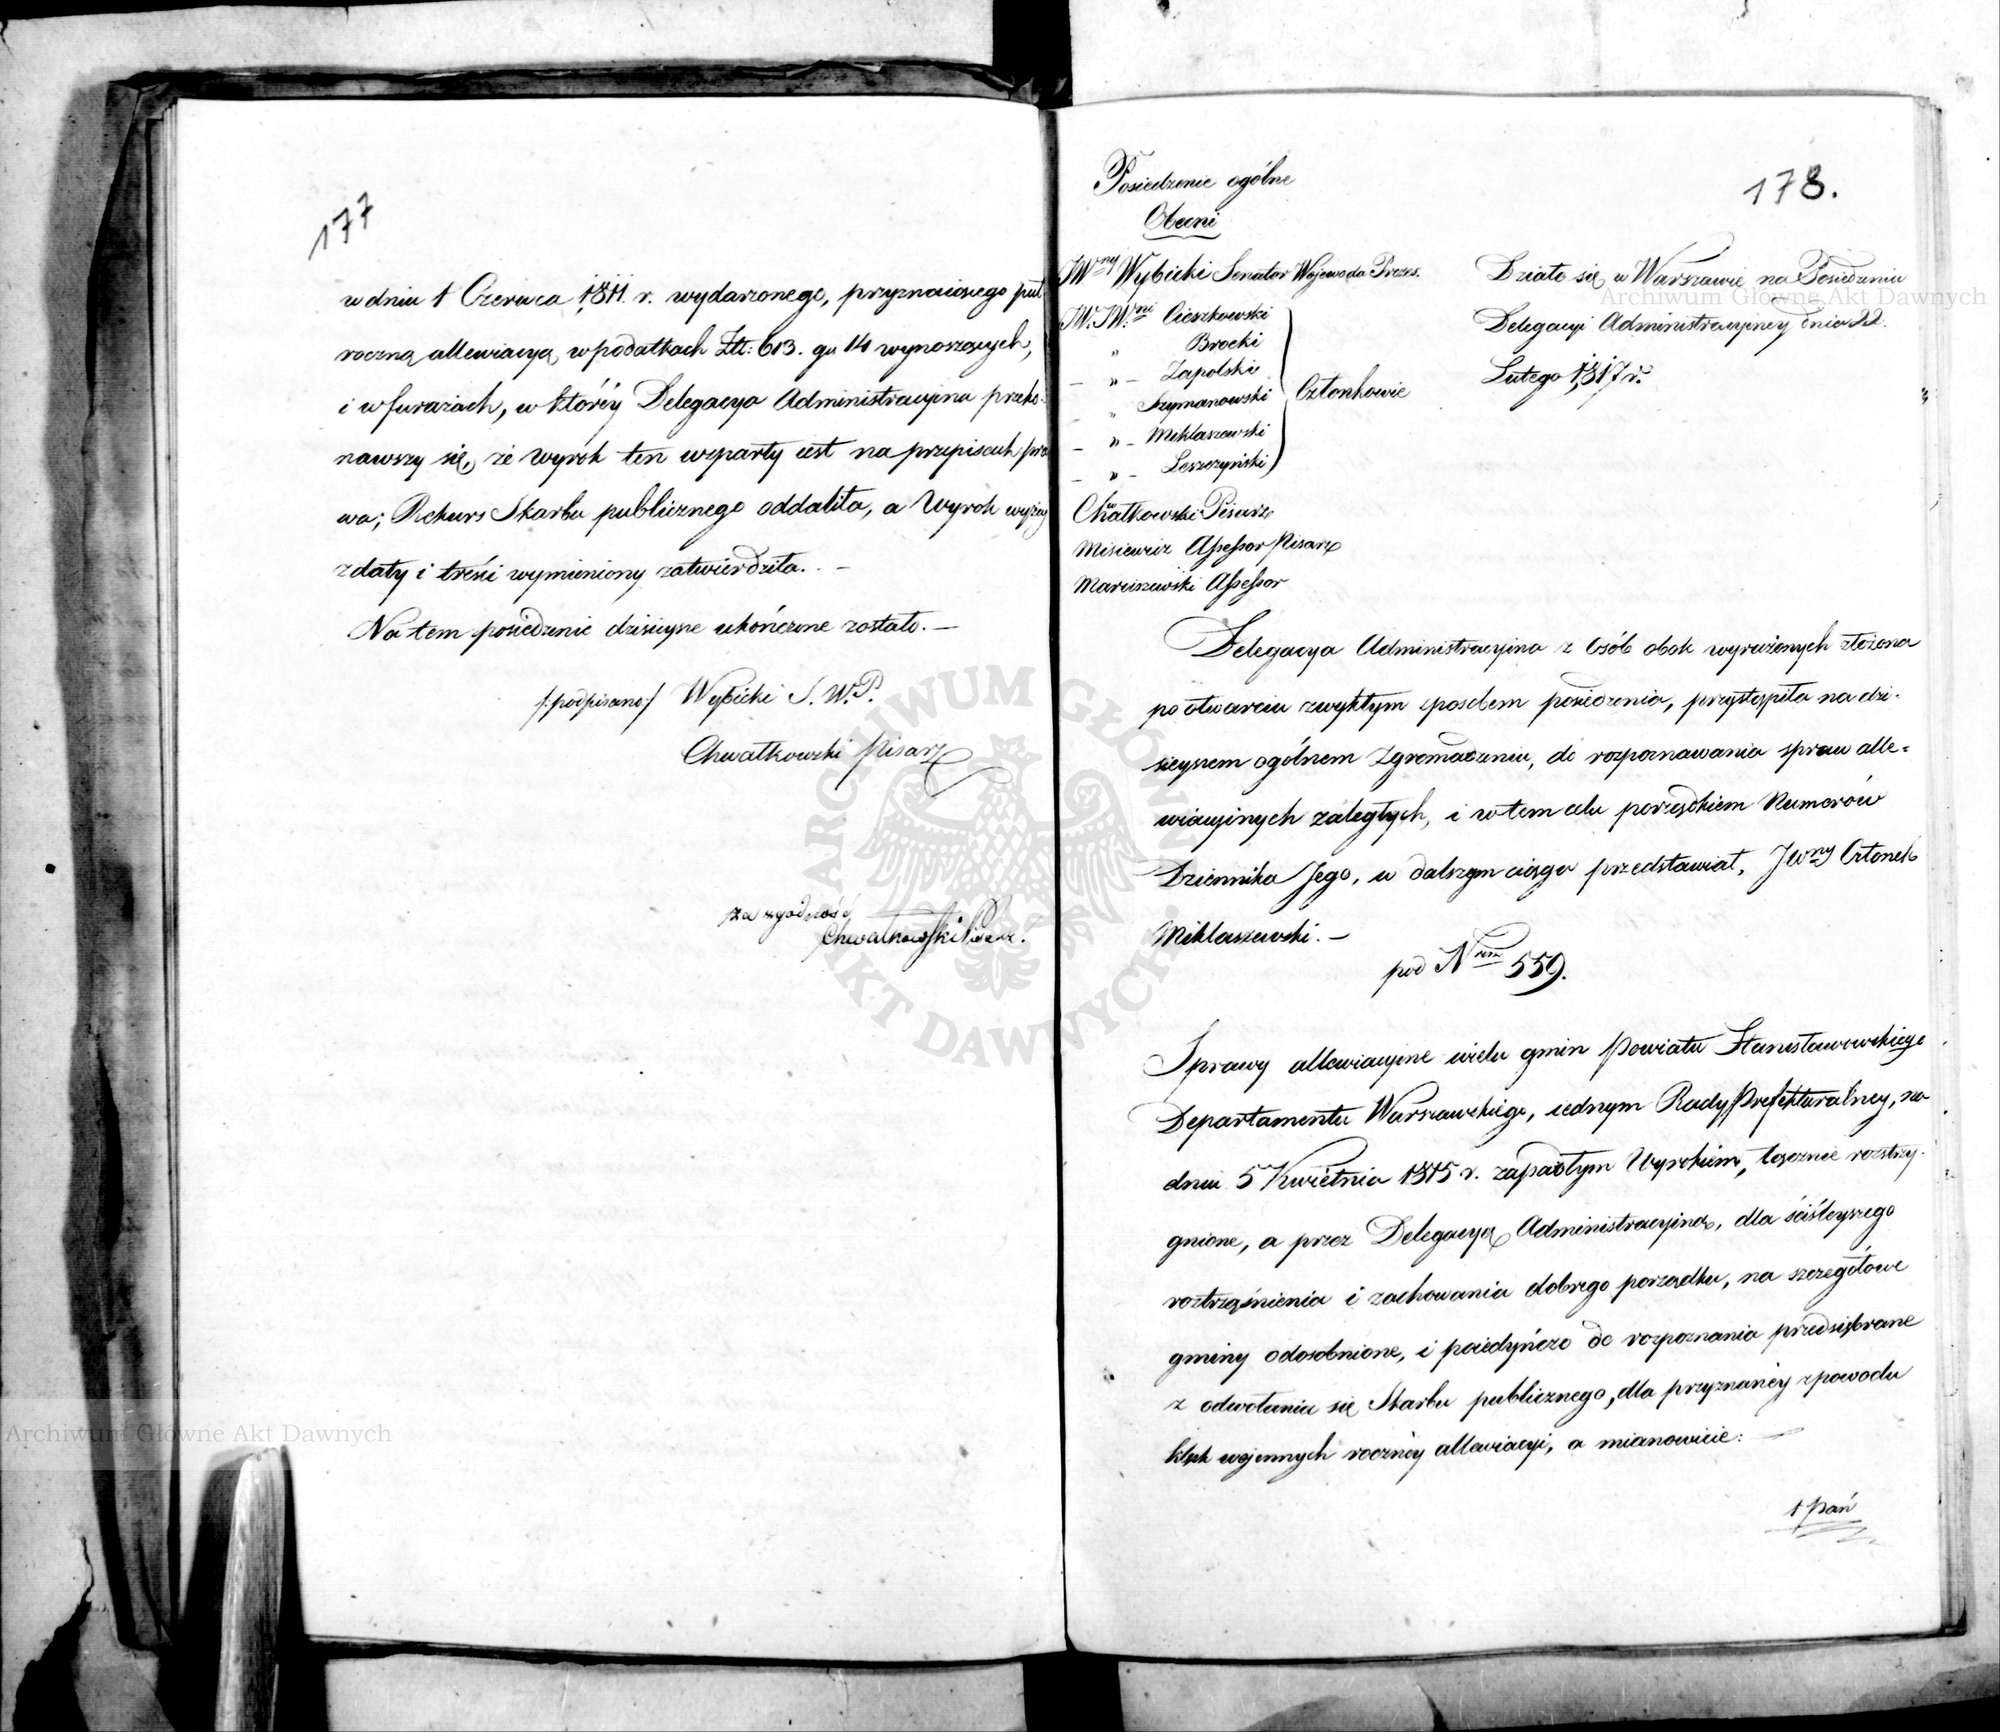 177
w dniu 1 Czerwca 1811. r. wydarzonego, przyznaiącego puł
roczną allewiacyą w podatkach Złł: 613. gr 14 wynoszących,
i w furażach, w któréy Delegacya Administracyina przeko-
nawszy się, że wyrok ten wsparty iest na przepisach pra
wa; Rekurs Skarbu publicznego oddaliła, a Wyrok wyżey
z daty i treści wymieniony zatwierdziła. —
Na tem posiedzenie dzisieysze ukończone zostało. —
/:podpisano:/ Wybicki S. W. P.
Chwatkowski Pisarz
za zgodność
Chwalkowski Pisarz.
178.
Posiedzenie ogólne
Obecni
JWny Wybicki Senator Wojewoda Prezes.
JW. JW.ni Cieszkowski
" Brocki
— " — Zapolski
" Szymanowski
— " — Miklaszewski
— " — Leszczyński
Członkowie
Chwatkowski Pisarz
Misiewicz Assessor Pisarz
Maruszewski Assessor
Działo się w Warszawie na Posiedzeniu
Delegacyi Administracyiney dnia 22.
Lutego 1817 r.
Delegacya Administracyina z osób obok wyrażonych złożona
po otwarciu zwykłym sposobem posiedzenia, przystąpiła na dzi-
sieyszem ogólnem Zgromadzeniu, do rozpoznawania spraw alle-
wiacyinych zaległych, i w tem celu porządkiem Numerów
Dziennika Jego, w dalszym ciągu przedstawiał, JWny Członek
Miklaszewski. —
pod Nrem 559.
Sprawy allewiacyine wielu gmin Powiatu Stanisławowskiego
Departamentu Warszawskiego, iednym Rady Prefekturalney, na
dniu 5 Kwietnia 1815 r. zapadłym Wyrokiem, łącznie rozstrzy-
gnione, a przez Delegacyą Administracyiną, dla ściśleyszego
roztrząśnienia i zachowania dobrego porządku, na szczegółowe
gminy odosobnione, i poiedyńczo do rozpoznania przedsiębrane
z odwołania się Skarbu publicznego, dla przyznanéy z powodu
klęsk wojennych rocznéy allewiacyi, a mianowicie: —
1 Pań
Archiwum Główne Akt Dawnych
Archiwum Główne Akt Dawnych
ARCHIWUM GŁÓWNE AKT DAWNYCH